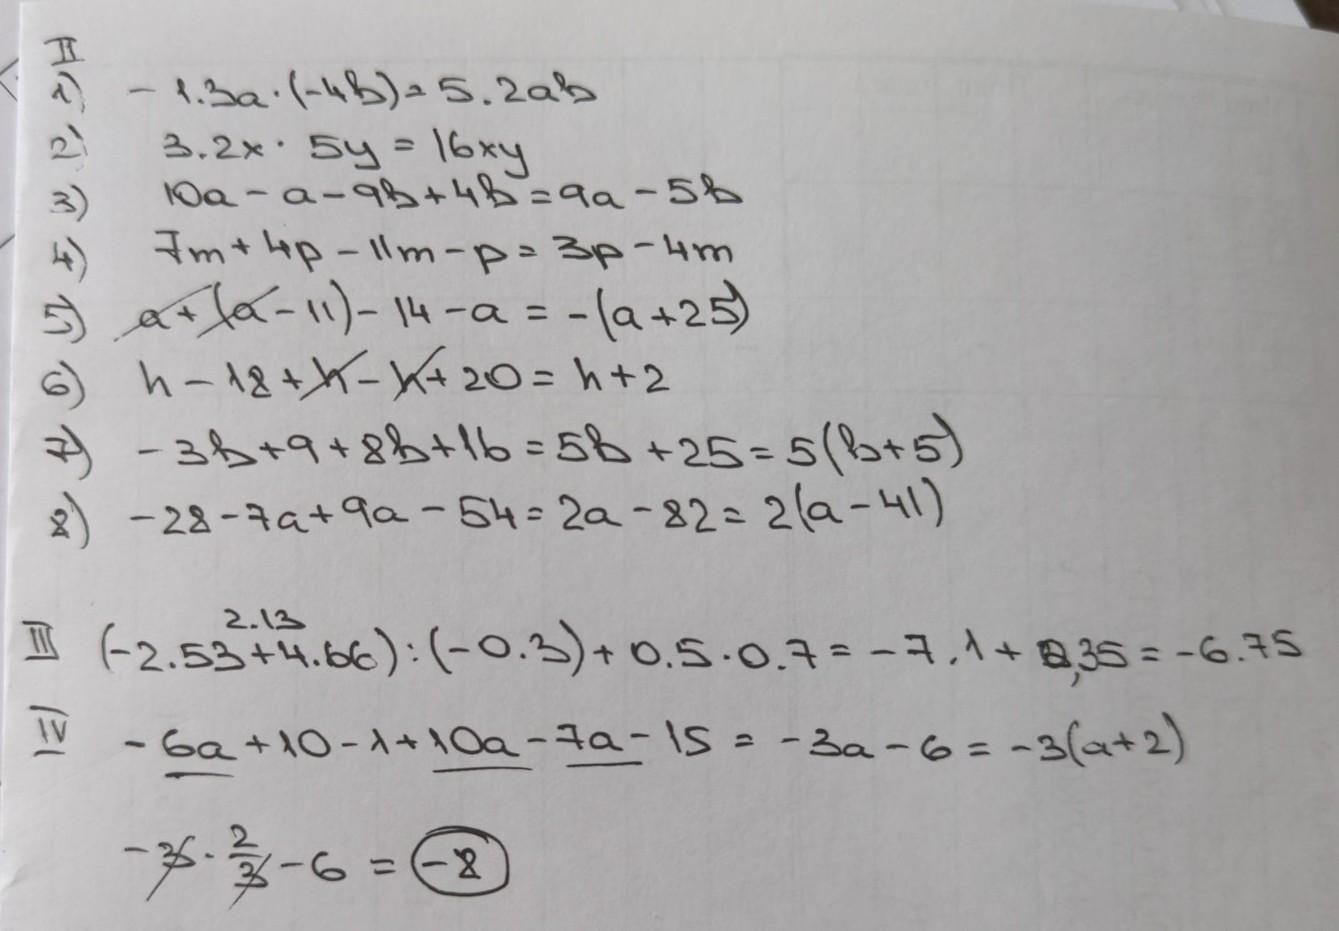 II
1) - 1.3a·(-4b) = 5.2ab
2) 3.2x · 5y = 16xy
3) 10a - a - 9b + 4b = 9a - 5b
4) 7m + 4p - 11m - p = 3p - 4m
5) a + (a - 11) - 14 - a = -(a + 25)
6) h - 18 + h - h + 20 = h + 2
7) - 3b + 9 + 8b + 16 = 5b + 25 = 5(b+5)
8) -28 - 7a + 9a - 54 = 2a - 82 = 2(a - 41)
2.13
III (-2.53 + 4.66) : (-0.3) + 0.5 · 0.7 = -7.1 + 0,35 = -6.75
IV - 6a + 10 - 1 + 10a - 7a - 15 = -3a - 6 = -3(a+2)
-3 · 2/3 - 6 = -8